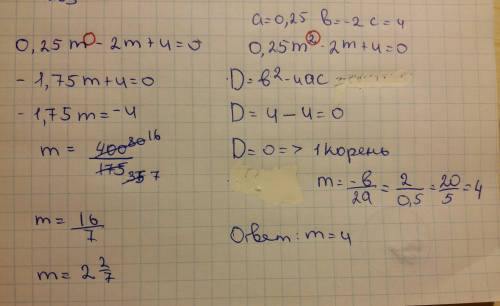 0,25m - 2m+4=0
- 1,75m+4=0
- 1,75m=-4
m = 400 80 16 / 175 35 7
m = 16/7
m = 2 2/7
a=0,25 в=-2 c=4
0,25m² - 2m+4=0
D=в²-4ac
D=4-4=0
D=0=> 1 корень
m= -в/2a = 2/0,5 = 20/5 = 4
Ответ: m=4